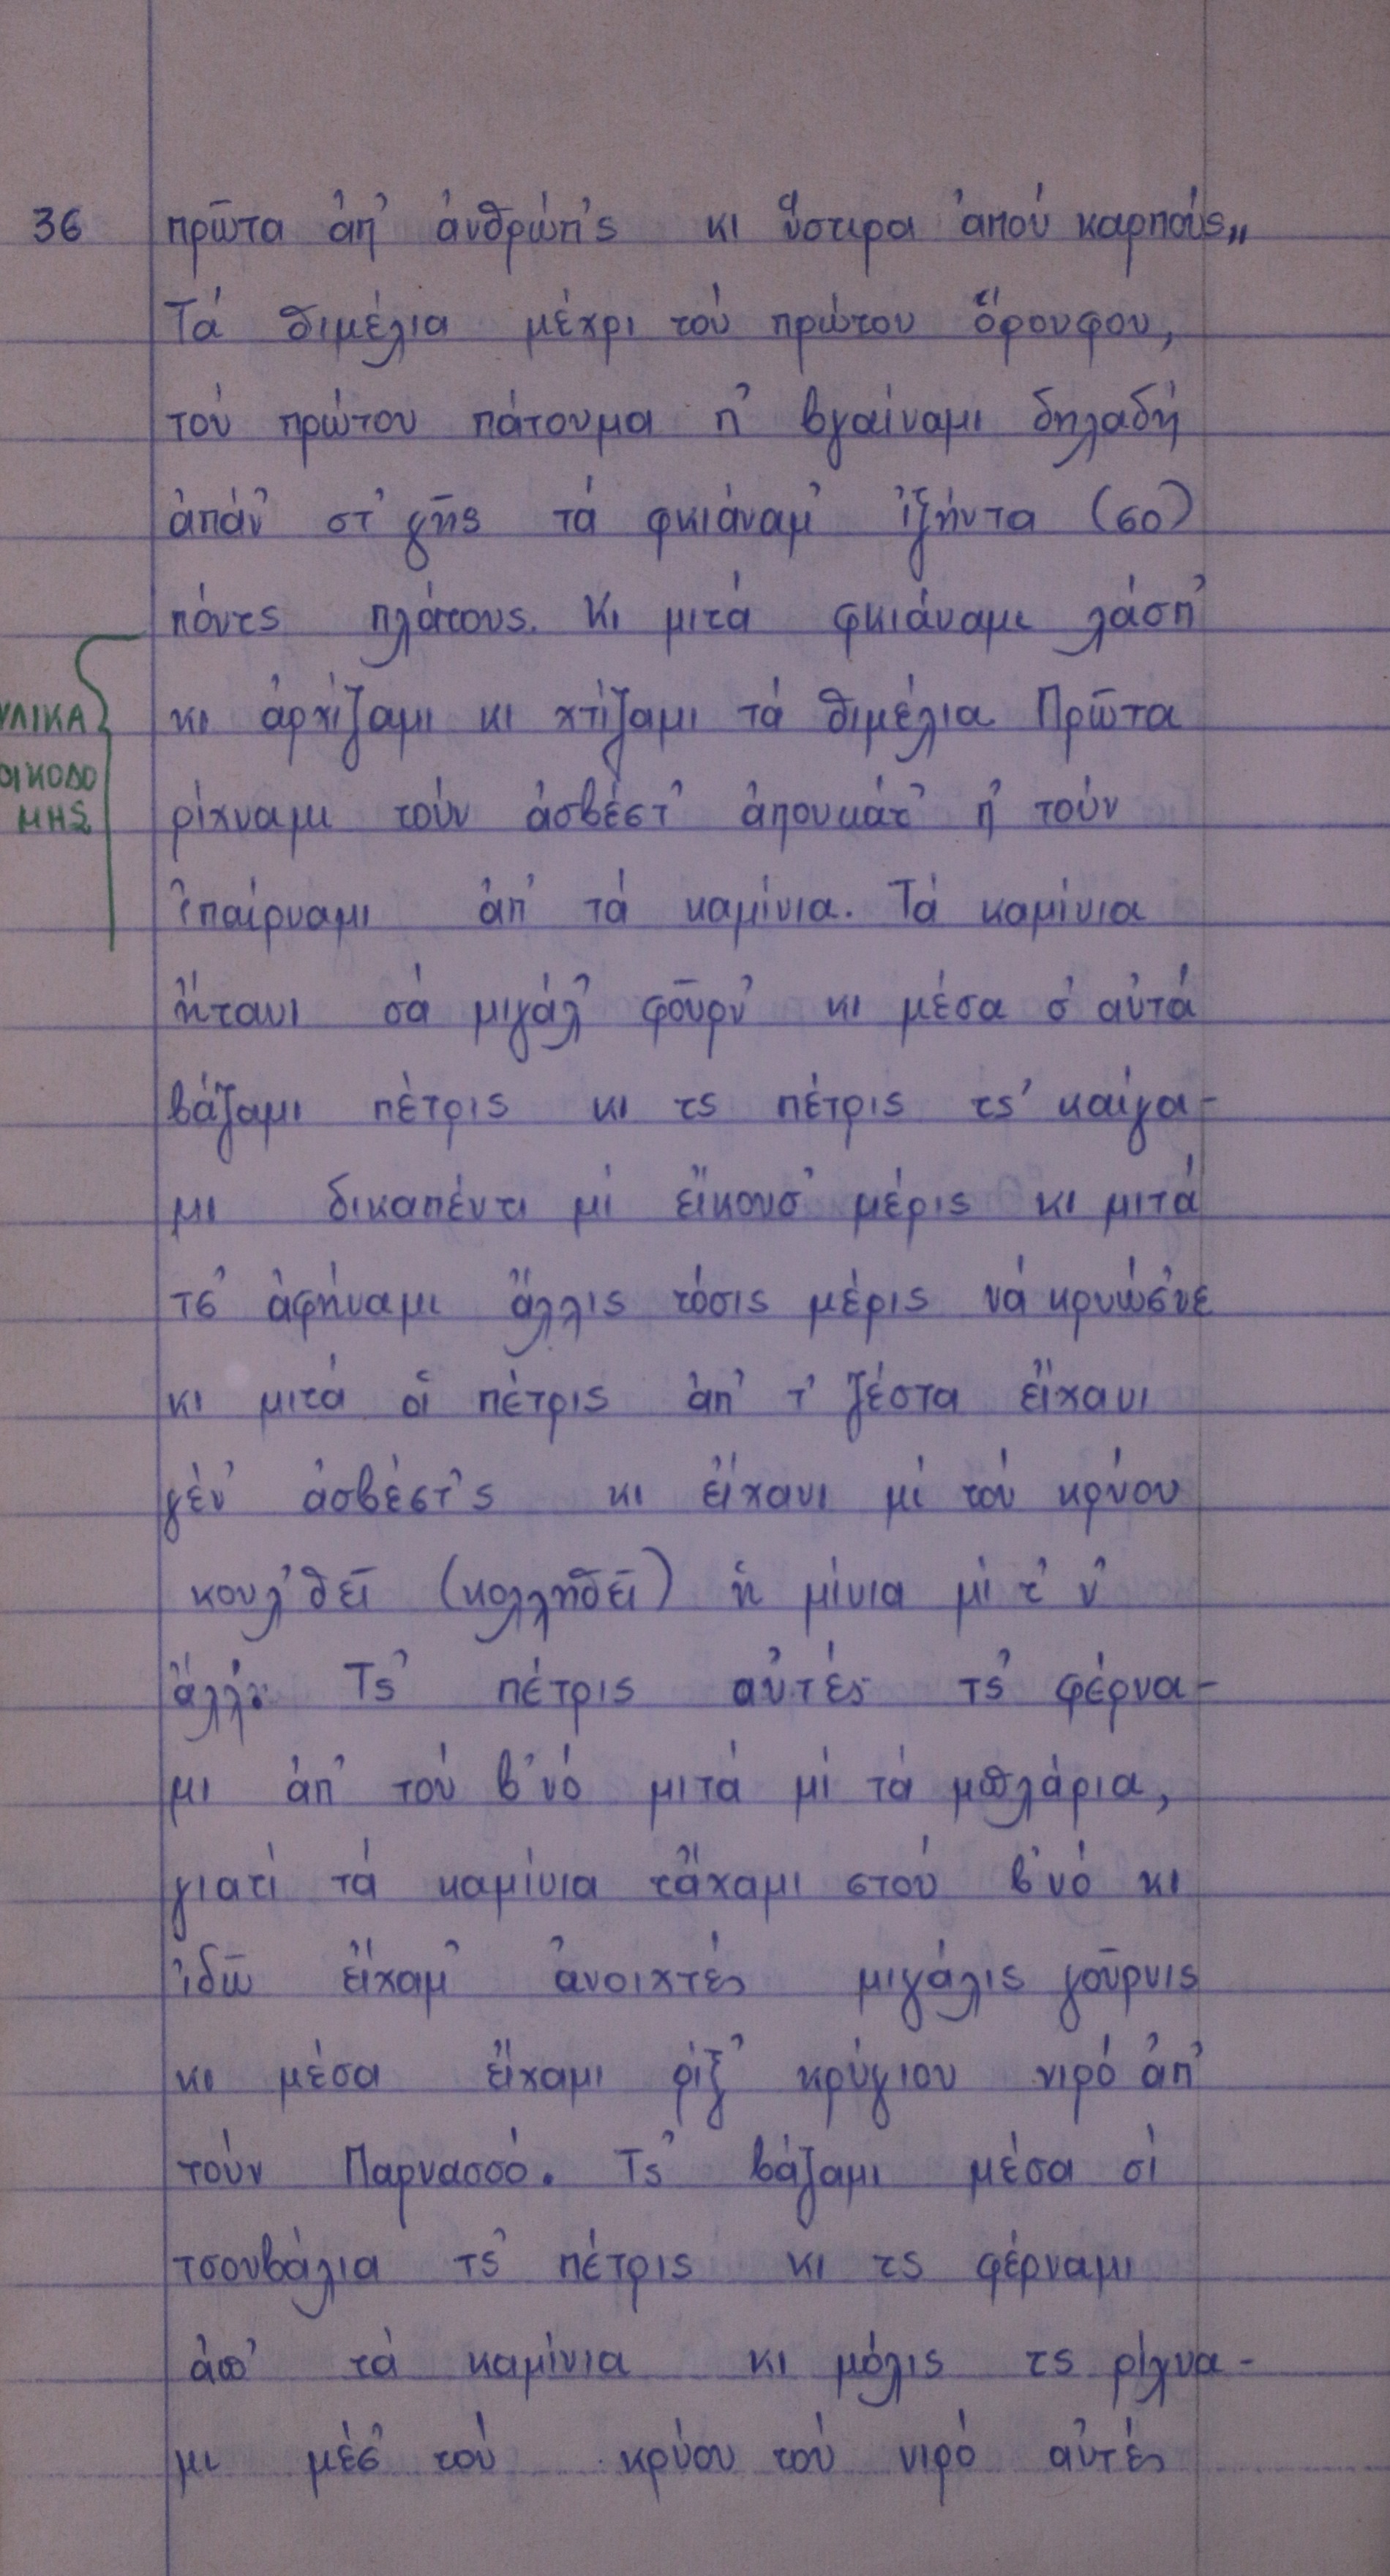 36 πρῶτα ἀπ' ἀνθρώπ'ς κι ὕστιρα ἀπού καρπούς„
Τά θιμέλια μέχρι τού πρώτου ὄρουφου,
τού πρώτου πάτουμα π' βγαίναμι δηλαδή
ἀπάν' στ' γῆς τά φκιάναμ' ἰξήντα (60)
πόντς πλάτους. Κι μιτά φκιάναμε λάσπ'
κι ἀρχίζαμι κι χτίζαμι τά θιμέλια. Πρῶτα
ΥΛΙΚΑ
ΟΙΚΟΔΟ
ΜΗΣ
ρίχναμι τούν ἀσβέστ' ἀπουκάτ' π' τούν
ἰπαίρναμι ἀπ' τά καμίνια. Τά καμίνια
ἤτανι σά μιγάλ' φοῦρν' κι μέσα σ' αὐτά
βάζαμι πέτρις κι τς πέτρις τς' καίγα-
μι δικαπέντι μί εἴκουσ' μέρις κι μιτά
τς' ἀφήναμι ἄλλις τόσις μέρις νά κρυώσ'νε
κι μιτά οἱ πέτρις ἀπ' τ' ζέστα εἴχανι
γέν' ἀσβέστ'ς κι εἴχανι μί τού κρύου
κουλ'θεῖ (κολληθεῖ) ἡ μίνια μί τ' ν'
ἄλλ'. Τς' πέτρις αὐτές τς' φέρνα-
μι ἀπ' τού β'νό μιτά μί τά μπλάρια,
γιατί τά καμίνια τἄχαμι στού β'νό κι
ἰδῶ εἴχαμ' ἀνοιχτές μιγάλις γοῦρνις
κι μέσα εἴχαμι ρίξ' κρύγιου νιρό ἀπ'
τούν Παρνασσό. Τς' βάζαμι μέσα σί
τσουβάλια τς' πέτρις κι τς φέρναμι
ἀπ' τά καμίνια κι μόλις τς ρίχνα-
μι μέσ' τού κρύου τού νιρό αὐτές